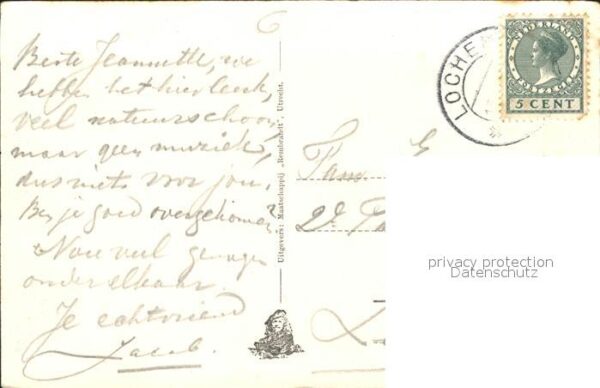 Beste Jeannette, we
hebben het hier leuk,
veel natuurschoon,
maar geen muziek,
dus niets voor jou.
Ben je goed overgekomen?
Nou veel
onder elkaar.
Je echtvriend
Jacob.
Uitgevers: Maatschappij „Rembrandt”, Utrecht.
Fam.
LOCHE
NEDERLAND
5 CENT
privacy protection
Datenschutz